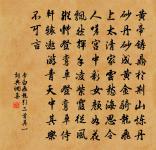 黃帝鑄鼎於荊山煉丹
砂丹砂成黃金騎龍飛
上太清家雲愁海思令
人嗟宮中彩女顏如花
飄然揮手凌紫霞從風
縱體登鸞車登鸞車侍
軒轅遨遊青天中其樂
不可言
李白飛龍引二首其一